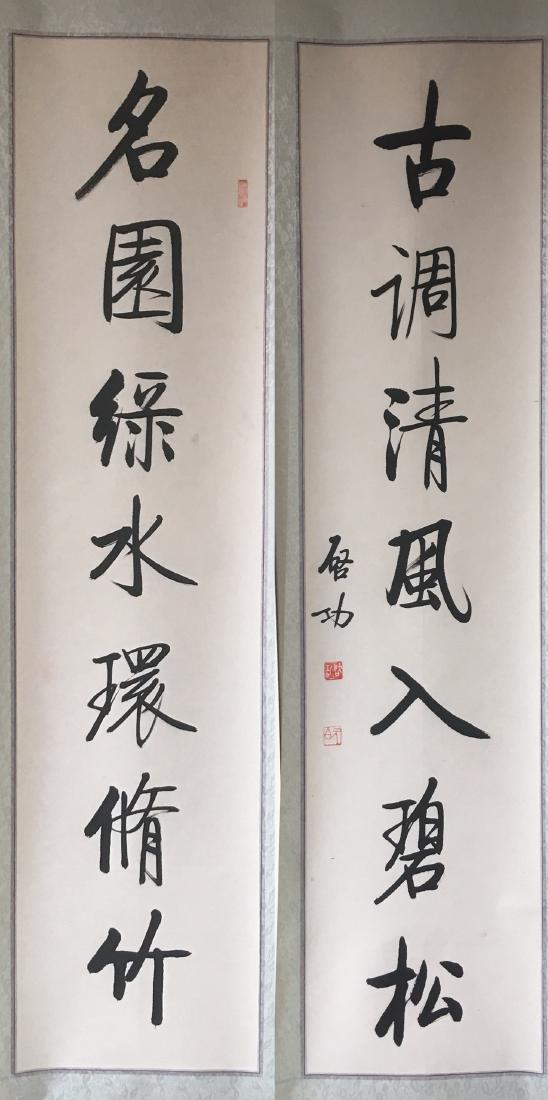 名園緑水環脩竹
古调清風入碧松
启功